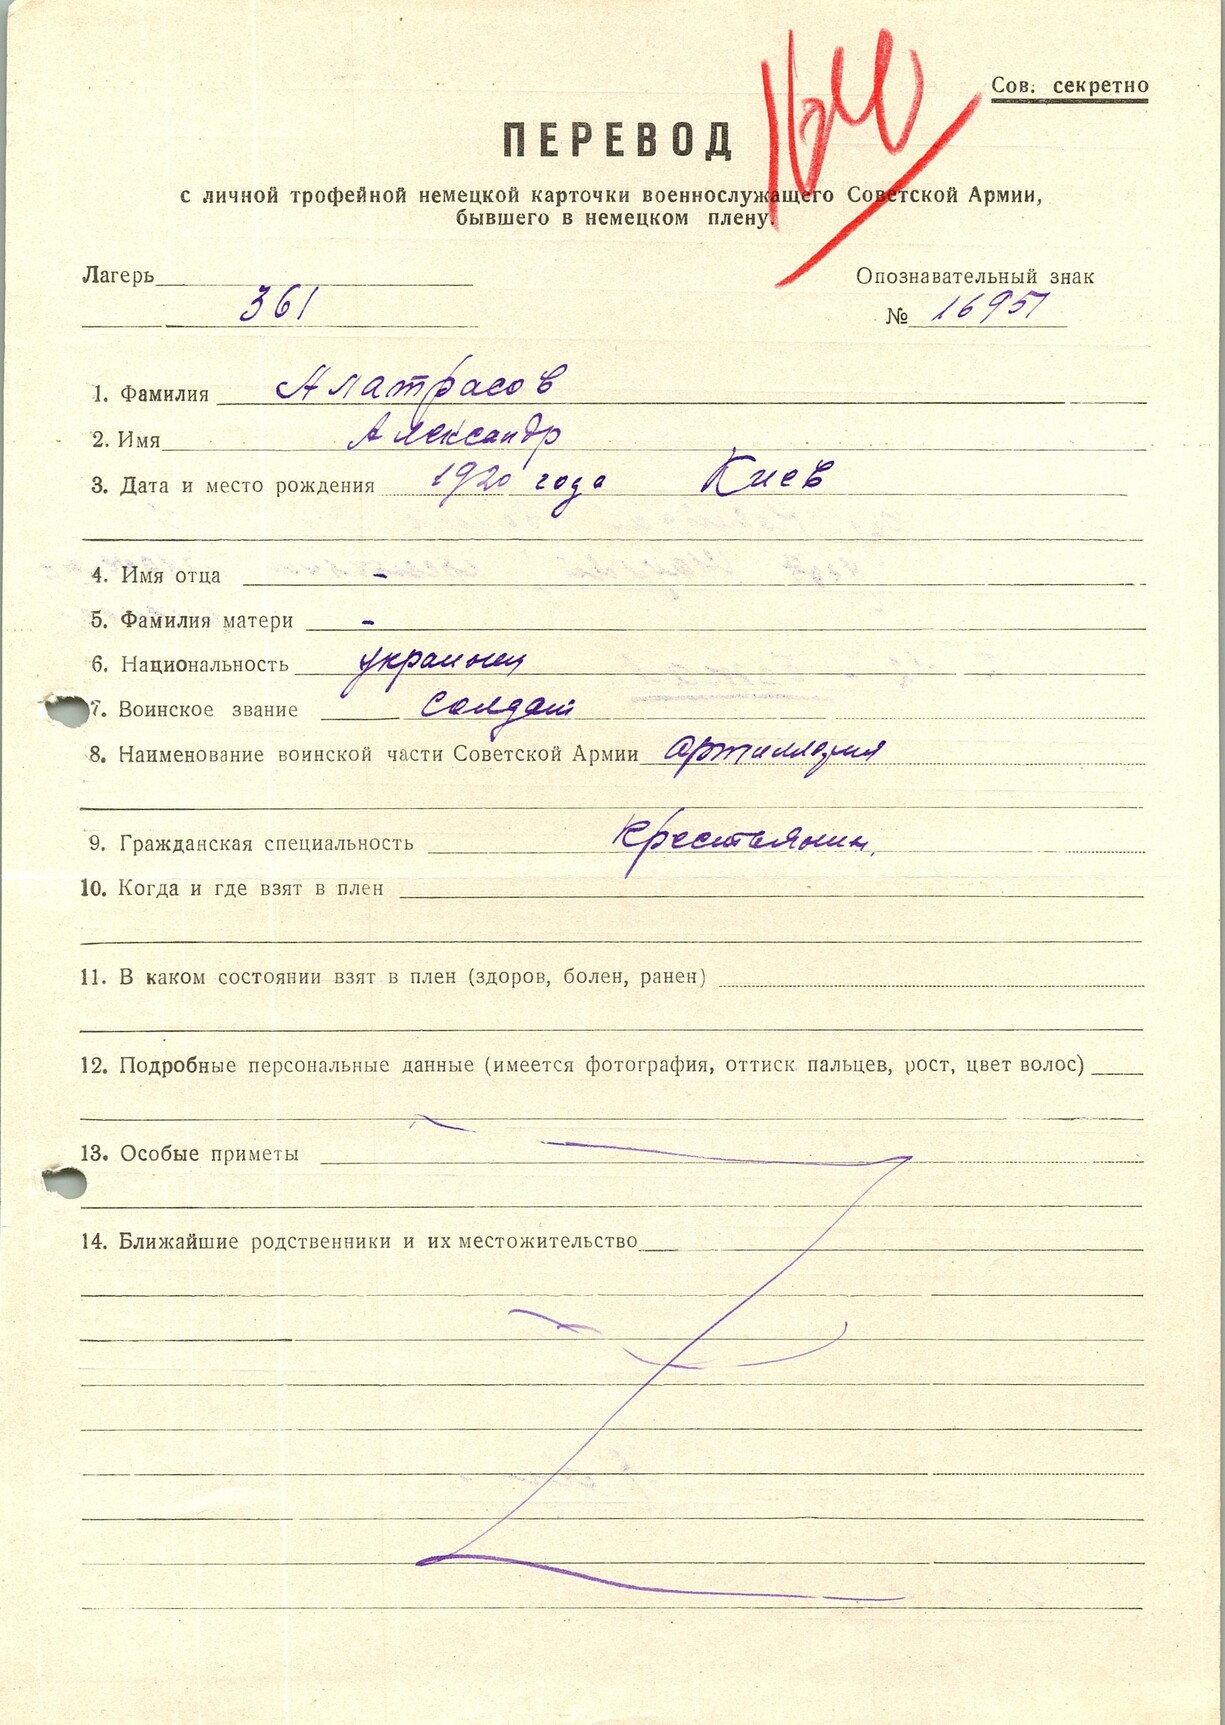 Сов. секретно
ПЕРЕВОД
с личной трофейной немецкой карточки военнослужащего Советской Армии,
бывшего в немецком плену.
Лагерь
Опознавательный знак
361
№ 16951
1. Фамилия Алатрасов
2. Имя Александр
3. Дата и место рождения 1920 года Киев
4. Имя отца -
5. Фамилия матери -
6. Национальность украинец
7. Воинское звание солдат
8. Наименование воинской части Советской Армии артиллерия
9. Гражданская специальность Крестьянин.
10. Когда и где взят в плен
11. В каком состоянии взят в плен (здоров, болен, ранен)
12. Подробные персональные данные (имеется фотография, оттиск пальцев, рост, цвет волос)
13. Особые приметы
14. Ближайшие родственники и их местожительство